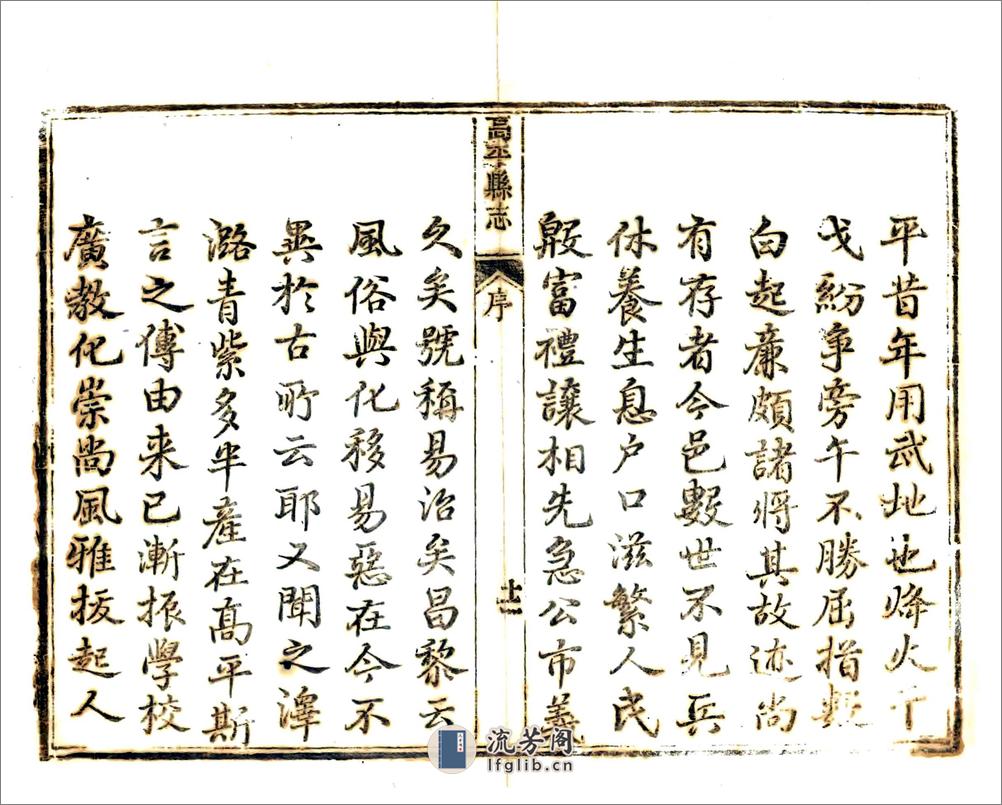 平昔年用武地也烽火干
戈紛爭旁午不勝屈指數
白起廉頗諸將其故迹尚
有存者今邑數世不見兵
休養生息户口滋繁人民
殷富禮讓相先急公市義
高平縣志
序
十一
久矣號稱易治矣昌黎云
風俗與化移易惡在今不
異於古所云耶又聞之澤
潞青紫多半產在高平斯
言之傳由来已漸振學校
廣教化崇尚風雅拔起人
流芳阁
lfglib.cn